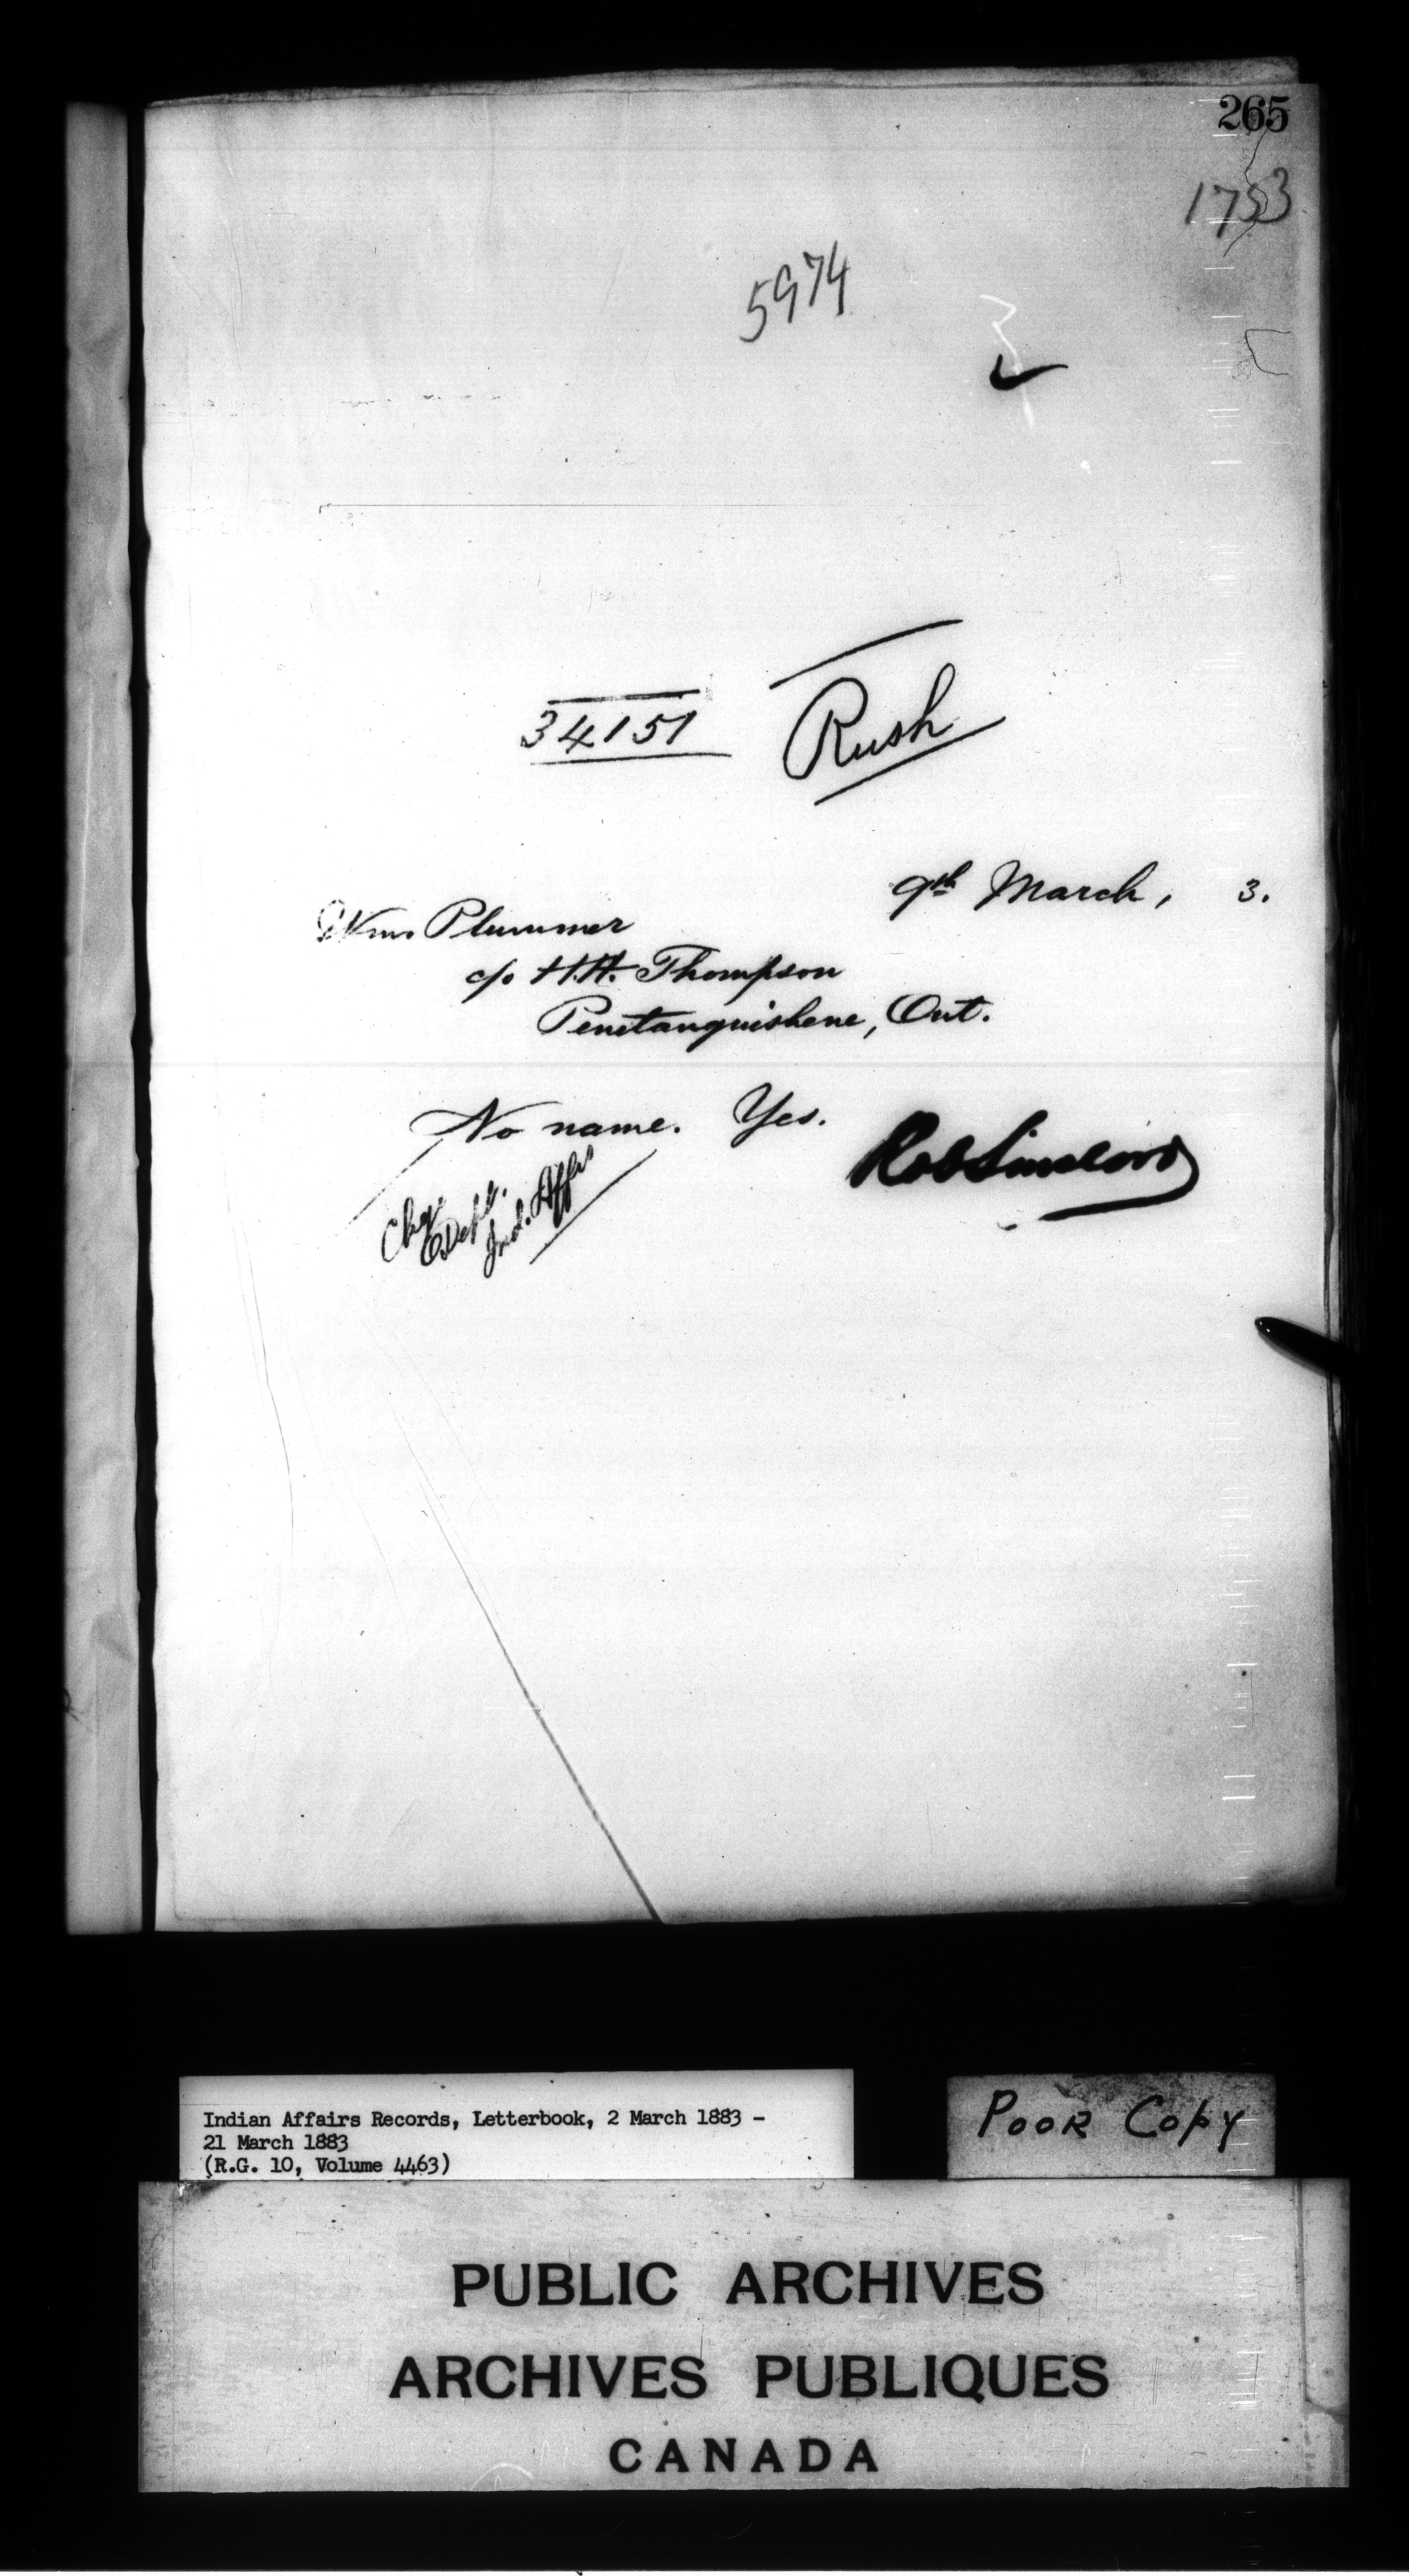 265
1753
5974
34151 Rush
9th March, 3.
Wm. Plummer
c/o H.H. Thompson
Penetanguishene, Ont.
No name. Yes. RobSinclair
Chg.
Dept.
Ind. Affrs
Indian Affairs Records, Letterbook, 2 March 1883 -
21 March 1883
(R.G. 10, Volume 4463)
Poor Copy
PUBLIC ARCHIVES
ARCHIVES PUBLIQUES
CANADA